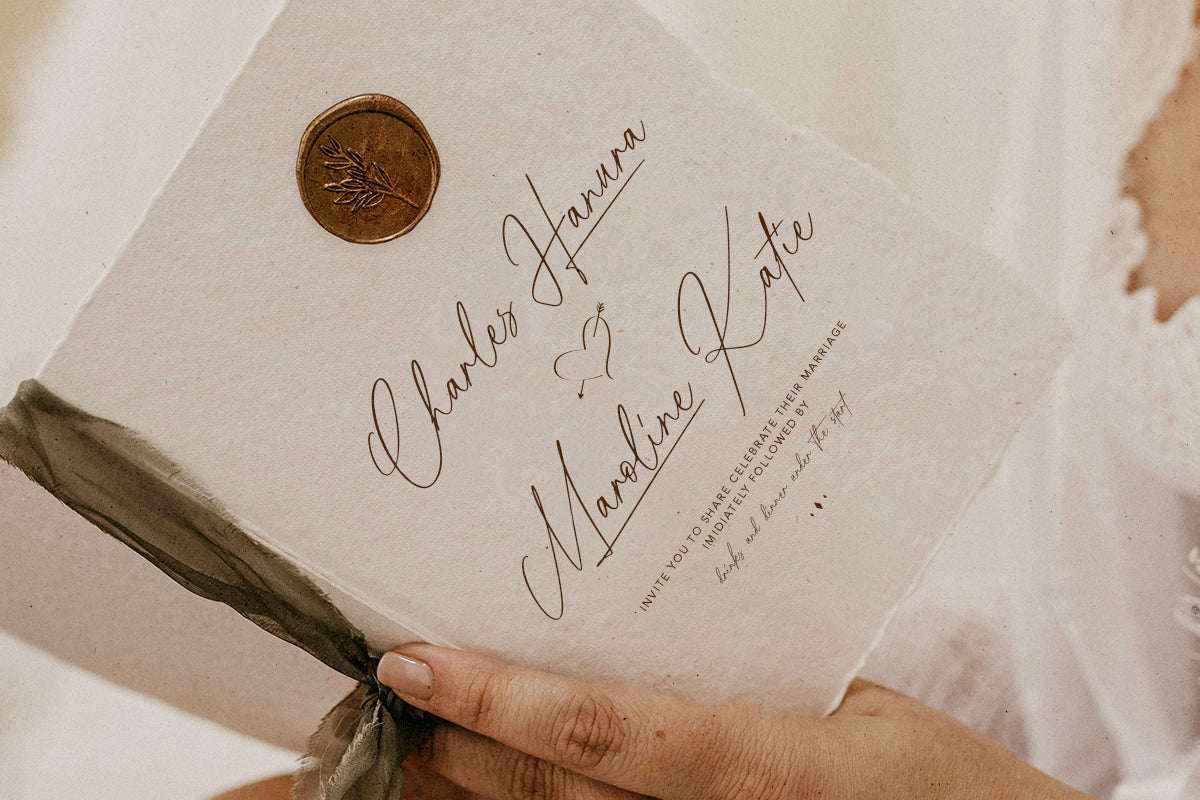 Charles Hanura
Maroline Katie
INVITE YOU TO SHARE CELEBRATE THEIR MARRIAGE
IMIDIATELY FOLLOWED BY
drinks and dinner under the start